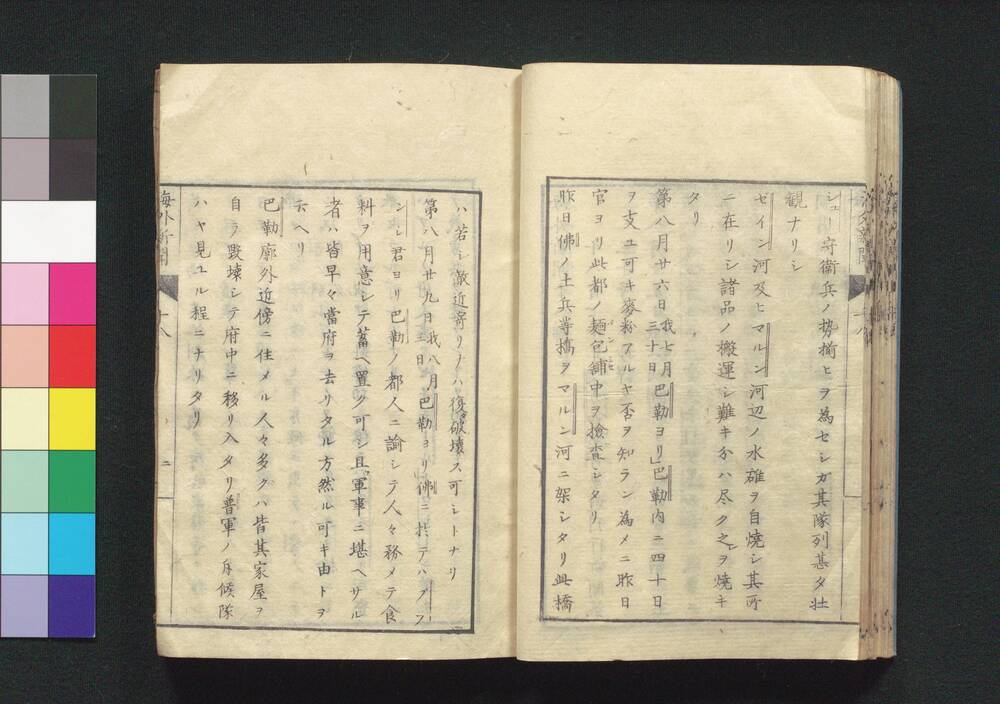 シユー守衛兵ノ勢揃ヒヲ為セシガ其隊列甚タ壮
観ナリシ
セイン河及ヒマルン河辺ノ水碓ヲ自焼シ其所
ニ在リシ諸品ノ搬運シ難キ分ハ尽ク之ヲ焼キ
タリ
第八月廿六日我七月三十日巴勒ヨリ巴勒内ニ四十日
ヲ支ユ可キ麥粉アルヤ否ヲ知ラン為メニ昨日
官ヨリ此都ノ麺包舗中ヲ撿査シタリ
昨日佛ノ土兵等橋ヲマルン河ニ架シタリ此橋
ハ若シ敵近寄リナハ復破壊ス可シトナリ
第八月廿九日我八月三日巴勒ヨリ佛ニ於テハ
シレ君ヨリ巴勒ノ都人ニ諭シテ人々務メテ食
料ヲ用意シテ蓄ヘ置ク可シ且軍事ニ堪ヘサル
者ハ皆早々當府ヲ去リタル方然ル可キ由トヲ
云ヘリ
巴勒廓外近傍ニ住メル人々多クハ皆其家屋ヲ
自ラ毀壊シテ府中ニ移リ入タリ普軍ノ斥候隊
ハヤ見ユル程ニナリタリ
海外新聞
十八
二